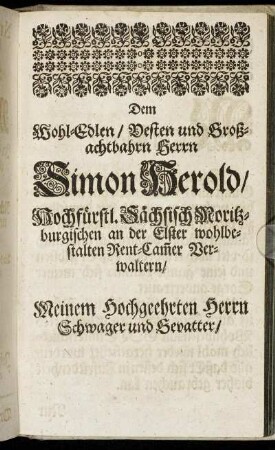 Dem
Wohl-Edlen/ Vesten und Groß-
achtbahrn Herrn
Simon Herold/
Hochfürstl. Sächsisch Moritz-
burgischen an der Elster wohlbe-
stalten Rent-Cam̃er Ver-
waltern/
Meinem Hochgeehrten Herrn
Schwager und Gevatter/